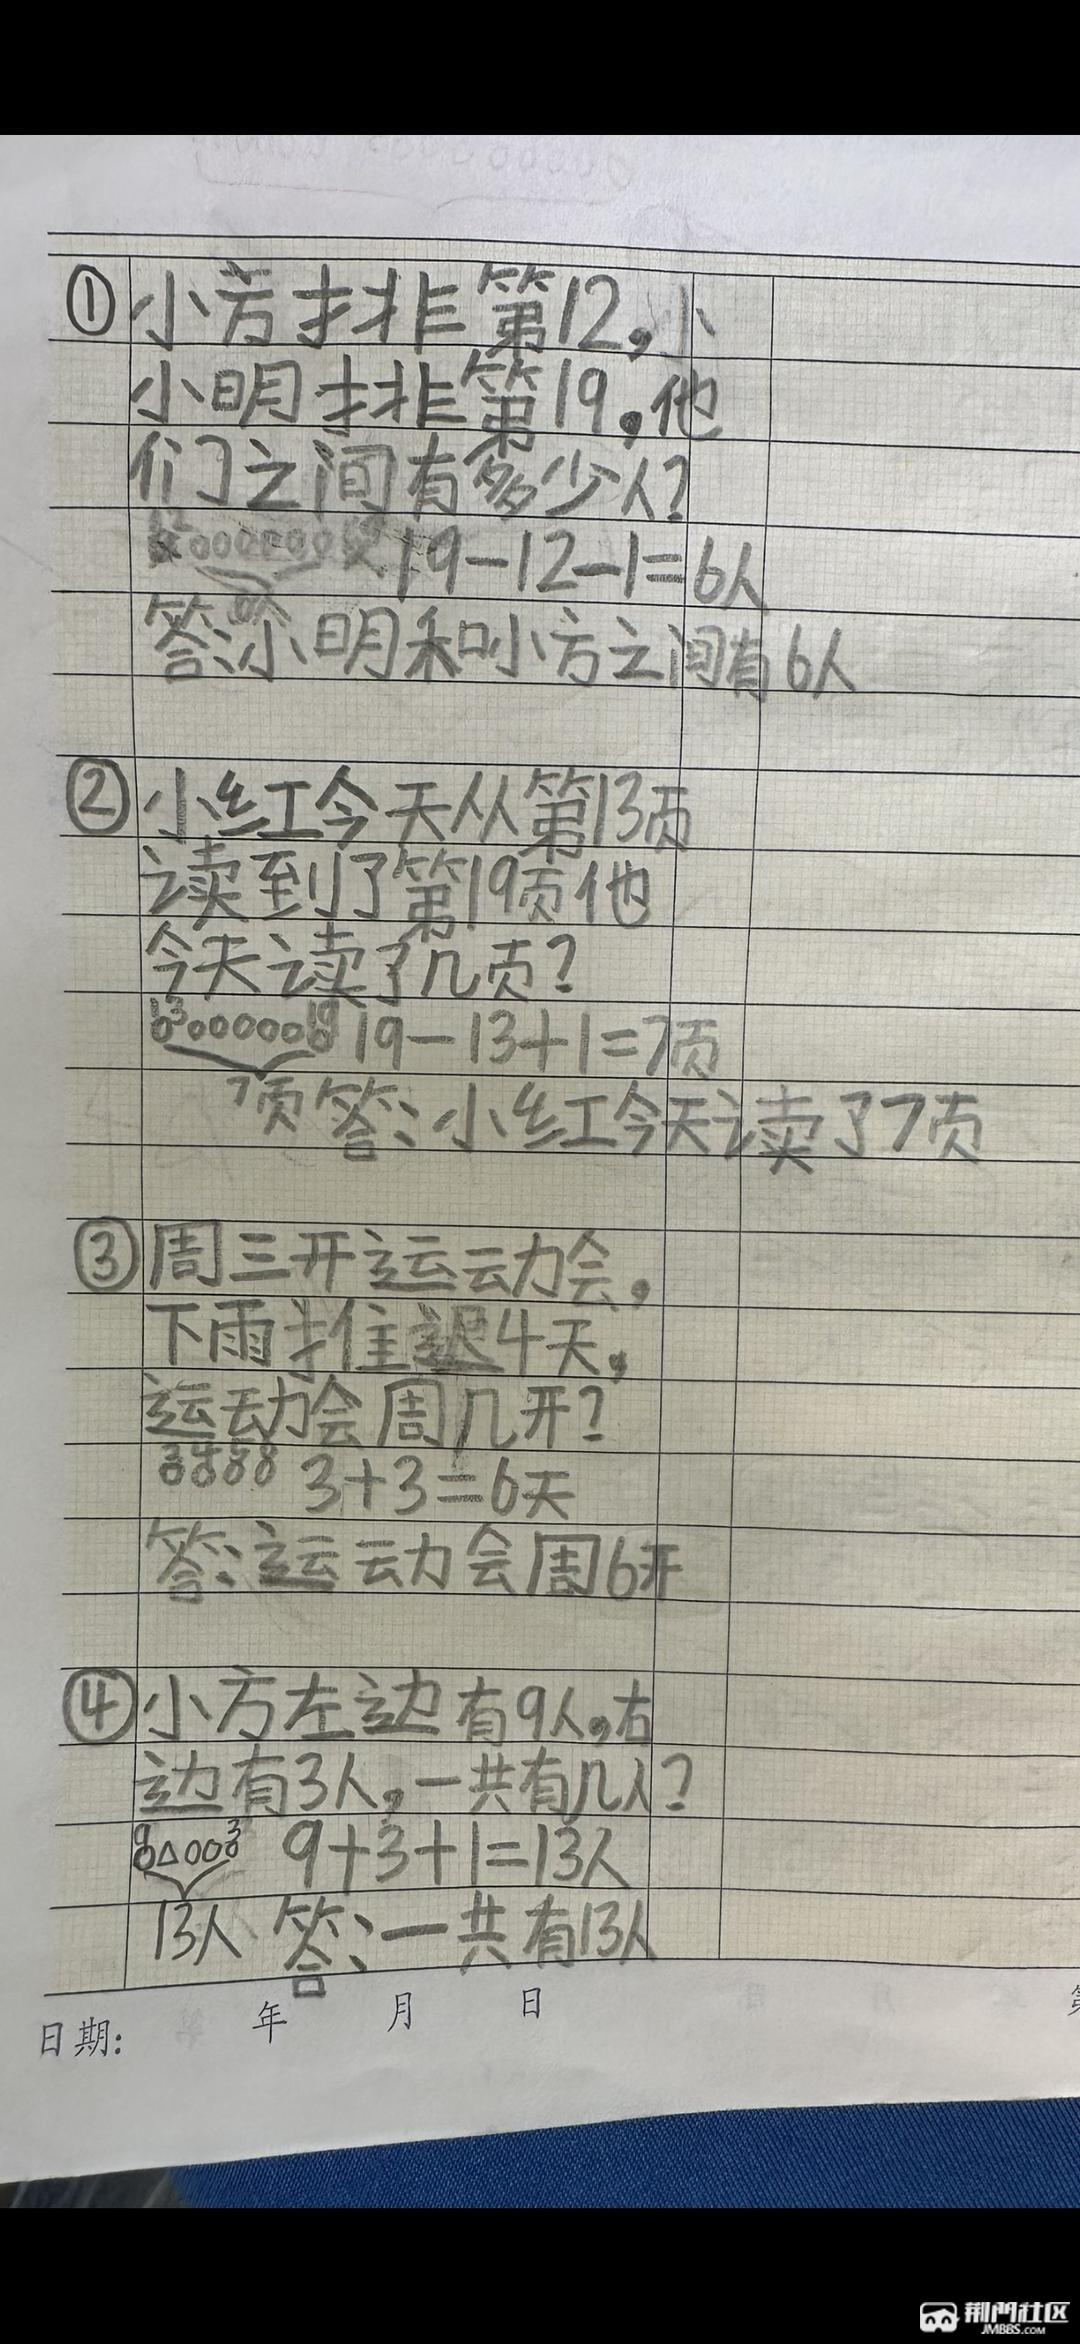 ① 小方排第12,小
小明排第19,他
们之间有多少人?
19-12-1=6人
答:小明和小方之间有6人
② 小红今天从第13页
读到了第19页他
今天读了几页?
13 19 19-13+1=7页
7页 答:小红今天读了7页
③ 周三开运动会,
下雨推迟4天,
运动会周几开?
3+3=6天
答:运动会周6开
④ 小方左边有9人,右
边有3人,一共有几人?
9 3 9+3+1=13人
13人 答:一共有13人
日期: 年 月 日
荆门社区
JMBBS.COM